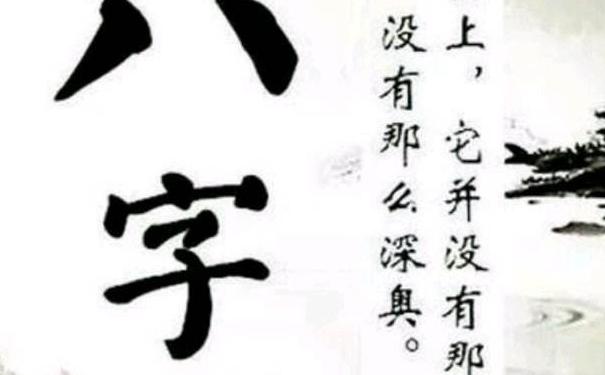 上，它并没有那
没有那么深奥。
八字